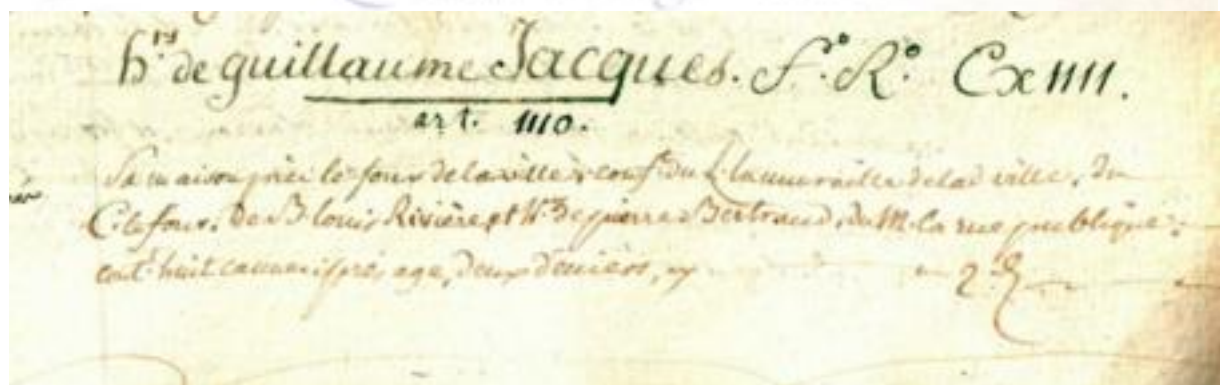 h.rs de guillaume Jacques. f.o R.o Cx1111.
art. 1110.
Sa maison près le four de la ville; conf.te du L. la muraille de lad. ville, du
C. le four, de B. louis Rivière, et h.rs de pierre Bertrand, du M. la rue publique;
cont. huit cannes, age, deux deniers, cy 2 d.